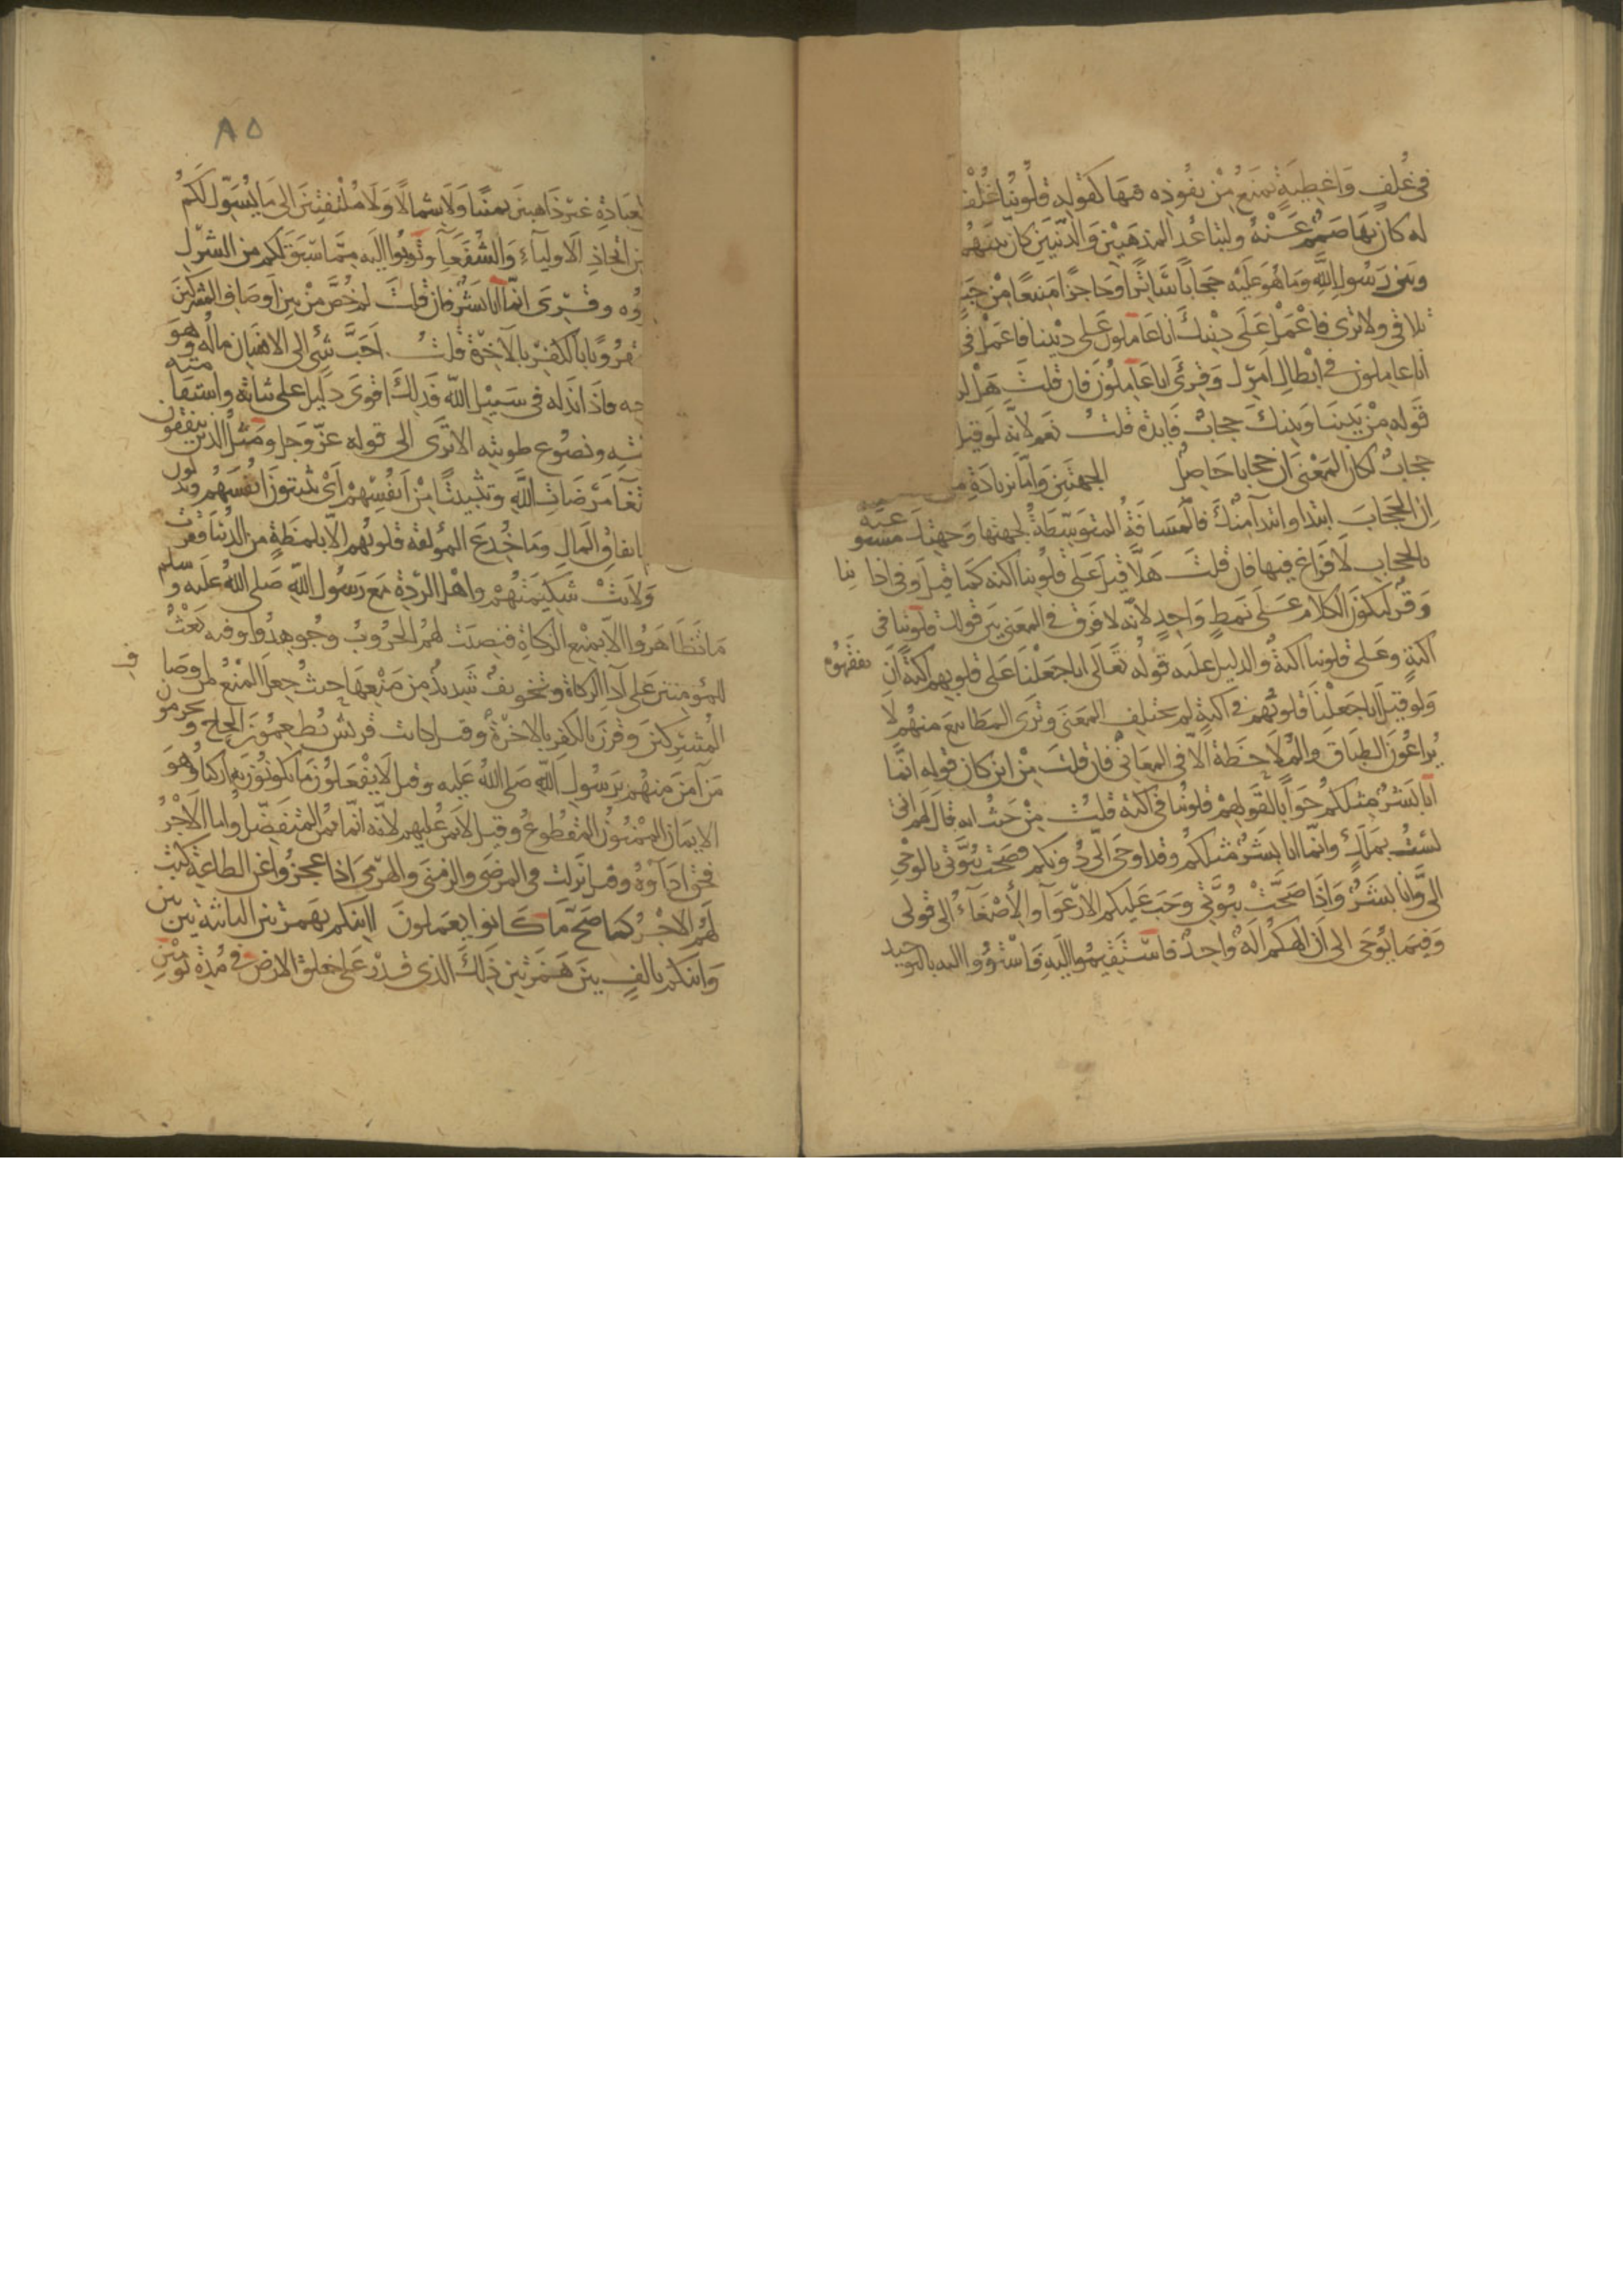 في غُلفٍ وَاغطيةٍ تمنَعُ مِنْ نفُوذه فيهَا كقوله قلُوبُنا غُلْفٌ
له كان بهَا صَمَمٌ عَنْهُ ولتباعُد المذهَبَيْنِ وَالدّينَينِ كان بينَهُمْ
وبَينَ رَسُولِ اللّٰهِ وَمَا هُوَ عَلَيْه حجَابًا سَاترًا وحَاجزًا مَنيعًا مِنْ جَبَل
تلاقى ولا ترى فاعْمَلْ عَلَى دِيْنكَ اننا عَاملونَ عَلى دِيْننا فاعْمَلْ في
اننا عاملون في ابْطالِ امرك وَقرئ انا عَامِلُونَ فان قلتَ هَلْ
قَوله مِنْ بَيننَا وَبينكَ حجابٌ فَايدة قلتُ نعَم لانّه لَو قيل
حجابٌ لكان المَعْنَى ان حجابا حَاصِلٌ الجهتَينِ وَامّا بزيادَةِ من
ان الحجَابَ ابتدا منا وابتدأ منكَ فالمسَافَةُ المتوَسّطَةُ لجهتنا وَجهتك مستوعبَة
بالحجاب لَا فَرَاغ فيها فان قلتَ هَلّا قيلَ عَلى قلُوبنا اكنّه كمَا قيلَ وفي اذاننا
وَقرٌ ليكونَ الكلام عَلَى نمَطٍ وَاحدٍ لانّه لا فَرق في المعَنى بَين قولك قلوبنا في
اكنةٍ وعَلى قلوبنا اكنةٌ والدليل عليه قولُه تعَالَى انا جَعَلْنا عَلى قلوبهم اكنةً انْ يفقهُوه
وَلو قيل انا جَعَلْنا قلوبُهم في اكنةٍ لم يختلِف المعَنى وتَرَى المطابيعَ منهُم لَا
يُراعُونَ الطبَاق والمُلَاحظَة الّا في المعَاني فان قلتَ مِنْ اينَ كان قوله انّما
انا بَشرٌ مِثلكم جَوَابًا لقَولهِمْ قلوبُنا في اكنة قلتُ مِنْ حَيْثُ انه قَالَ لهُمْ اني
لسْتُ بمَلَكٍ وانّما انا بَشَرٌ مثلكم وقد اوحيَ اليّ دُونكم فصَحّتْ نبُوّتي بالوَحْي
اليّ وَانا بشَرٌ وَاذَا صَحَّتْ نبُوّتي وَجَبَ عَليكم الارْعِوآ والإصْغَآءُ الى قَولى
وَفيمَا يُوحَى الى ان الهكُمْ الهٌ واحِدٌ فاسْتَقيمُوا اليهِ فَاسْتَوُوا اليه بالتوحيد
٨٥
العبَادَةِ غيرَ ذَاهبينَ يمينًا وَلَا شمالًا وَلَا مُلْتفتينَ الى مَا يُسَوّل لَكمُ
من اتخاذِ الاوليآءِ وَالشُفَعَآ وتُوبُوا اليه مِمّا سَبَقَ لكم من الشرك
وُه وقرئ انّما انا بَشرٌ فان قلتَ لم خُصَّ مِنْ بينِ اَوصَاف المشركينَ
مقرُونًا بالكفْر بالآخرة قلتُ احَبُّ شَئ الى الانسَان مالُه وهوَ
فاذا بَذله في سَبيْل اللّٰهِ فَذلكَ اقوَى دَليل على ثباته واستقا مته
ونصُوع طويّته الا تَرَى الى قوله عزّ وَجل وَمَثلُ الذين ينفقون
ابتغآ مَرضَات اللّٰهِ وتثبيتًا مِنْ اَنفُسِهِمْ اَيْ يُثبتونَ انْفُسَهُم وتدلون
بانفاقِ المَالِ وَمَا خُدعَ المؤلفة قلوبُهم الّا بلمظةٍ من الدُنيا فقرت
وَلَانتْ شكيمَتُهُمْ واهْل الرّدَة بَعَ رَسُولِ اللّٰهِ صَلى اللّٰهُ عَلَيه وسلم
مَا تظَاهَرُوا الّا بمنْعِ الزكاةِ فنصبَت لهُمُ الحروبُ وجُوهدُوا وفيه بَعْثٌ
للمؤمنينَ عَلى ادآ الزكاة وتخويفٌ شَديدٌ مِن مَنْعِهَا حيثُ جعلَ المنْعُ من اوصَاف
المُشْركينَ وَقُرنَ بالكفر بالاخرَة وقيل كانت قريش يُطعمُونَ الحاج ويحرمون
مَن آمنَ منهُم برَسُولِ اللّٰهِ صَلى اللّٰهُ عَليه وقيل لَا يفعَلونَ مَا يكونونَ به ازكيآ وهوَ
الايمَان الممْنُونُ المقطُوعُ وقيل لا يمنّ عليهم لانّه انّما يمنّ المتفَضّلُ واما الاَجْرُ
فحق ادَآؤهُ وقيل نزلت في المرضَى والزمنَى والهرْمى اذا عجزُوا عن الطاعة كتب
لهُم الاَجْرُ كما صَحّ مَا كَانوا يعمَلونَ اانكم بهمزتين الثانية بين بين
وَاانكم بالفٍ بينَ هَمزتينِ ذَلكَ الذي قدرَ عَلى خلق الارض في مُدَة يَومَيْنِ